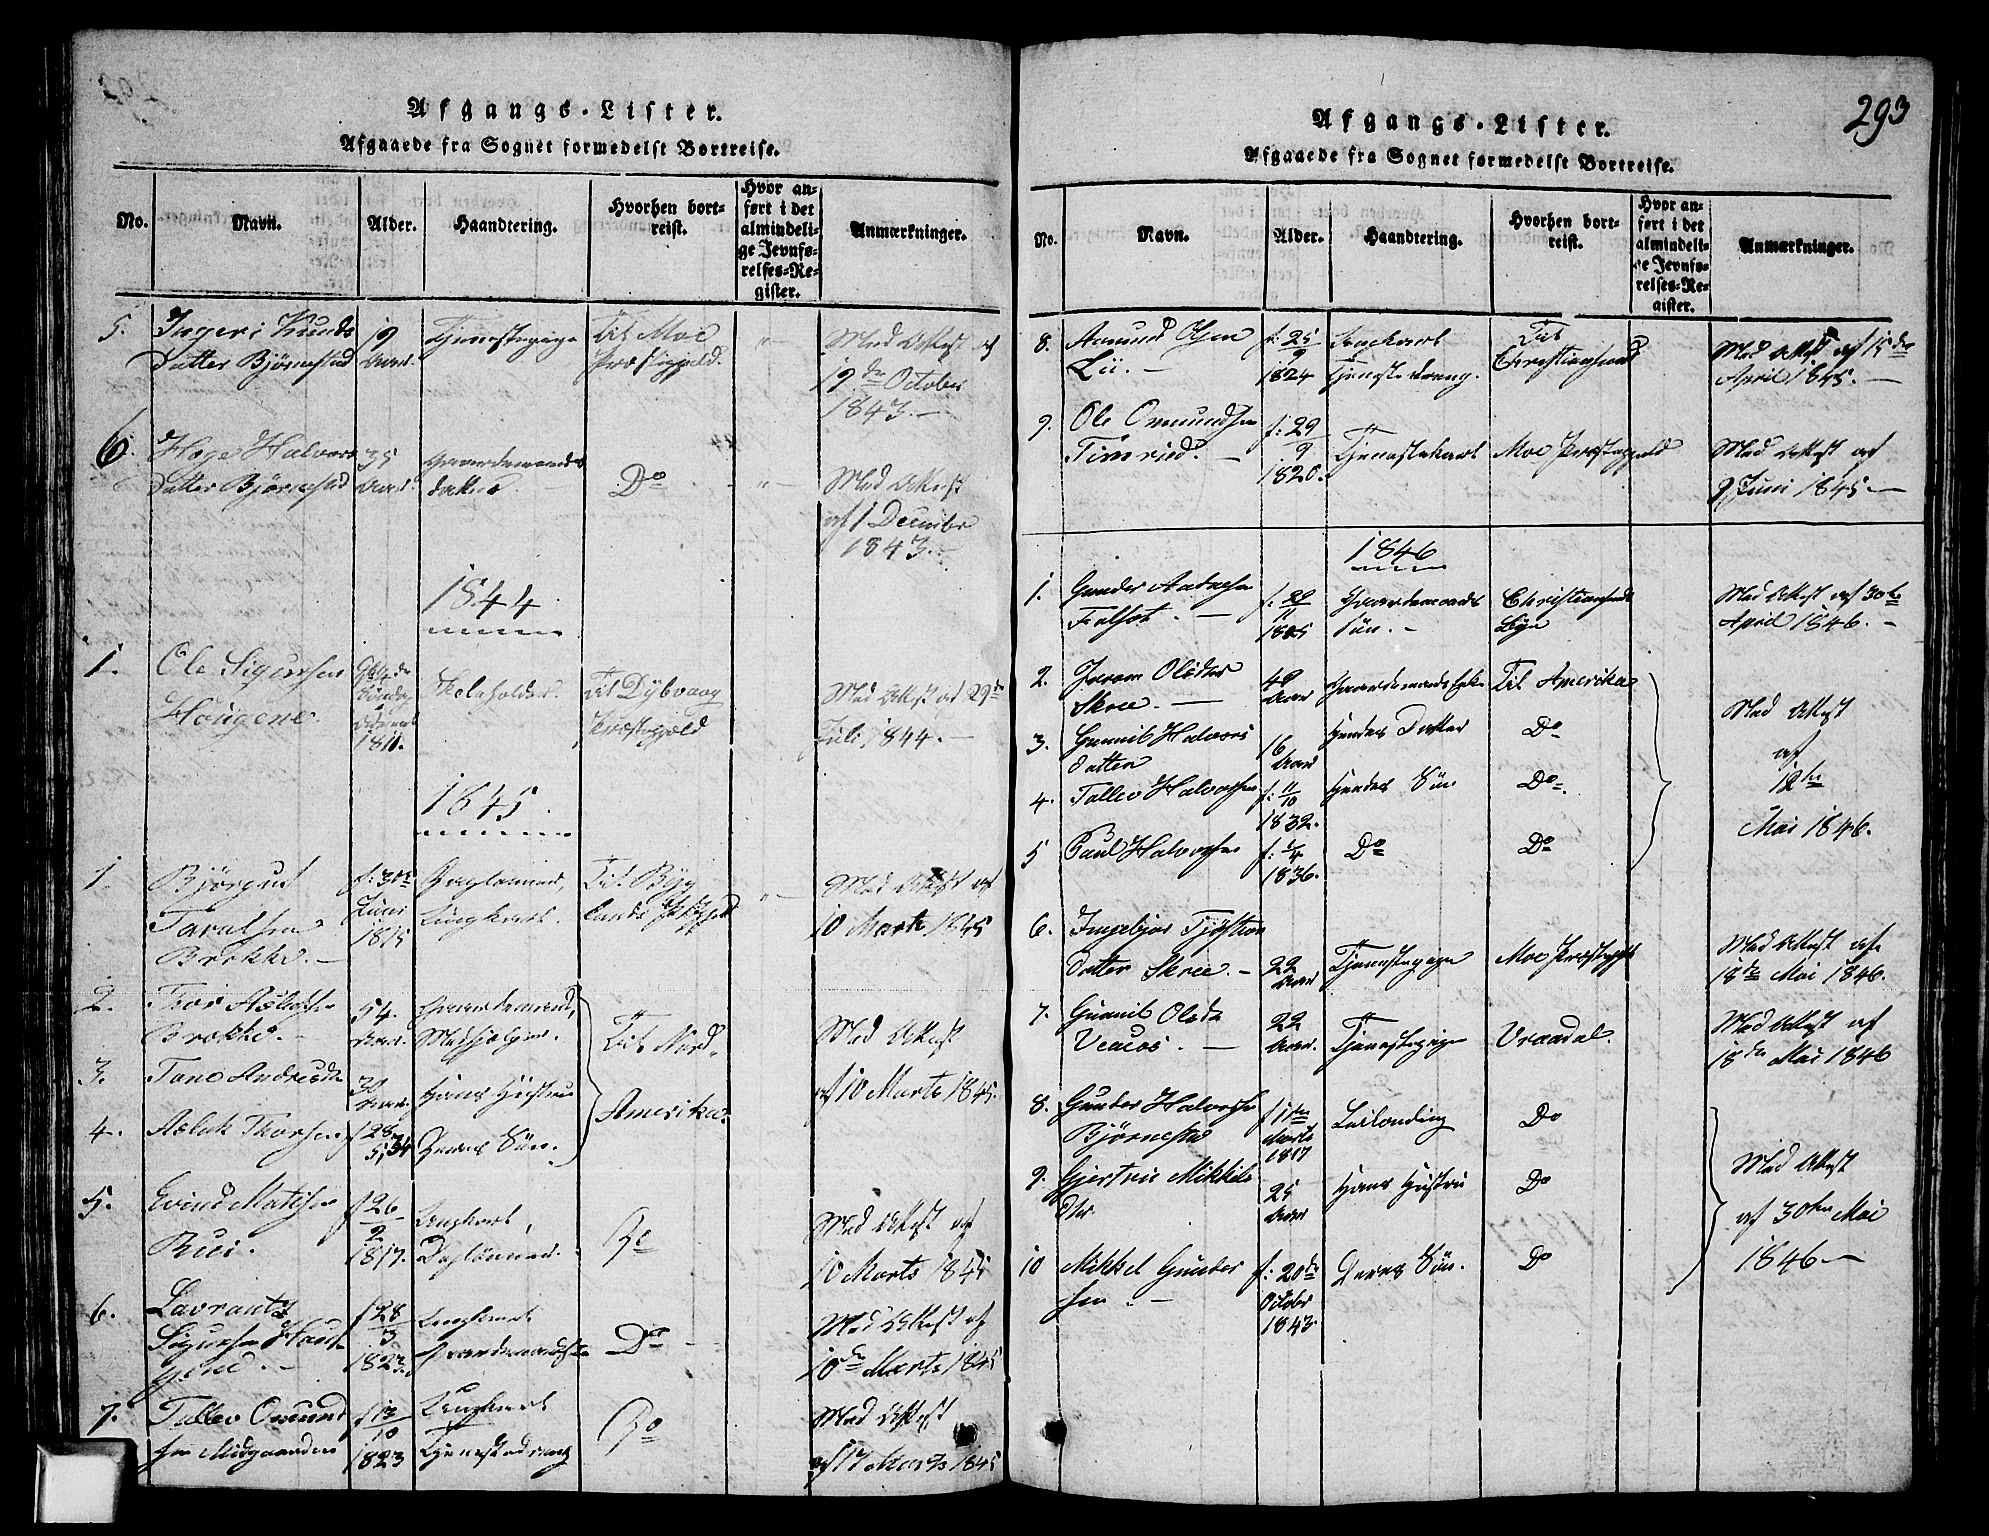 Afgangs-Lister.
Afgaaede fra Sognet formedelst Bortreise.
No. Navn. Alder. Haandtering. Hvorhen bortreist. Hvor anført i det almindelige Jevnførelses-Register. Anmærkninger.
5. Ingeri Knuds 19 Tjenestepige Til Moe Med Attest af
Datter Bjørnestad Aar. Præstegjeld. 19de October
1843.
6. Hæge Halvors 35 Gaardmands
Datter Bjørnestad Aar datter. Do Med Attest
af 1 December
1843.
1844
1. Ole Sigursen Skoleholder. Til Dybvaag Med Attest af 29de
Hougene. 1811. Præstegjeld Juli 1844.
1845.
1. Bjørgus f: 30te Til Byg Med Attest af
Taralsen Juni Ungkarl. lands 10 Marts 1845
Brokke. 1815
2. Thor Aslaksen 54. Gaardmand,
Brokke. Aar. Til Nord- Med Attest
3. Tone Andresdr 30 Aar. Hans Hustru Amerika. af 10 Marts 1845.
4. Aslak Thorsen Deres Søn.
5. Evind Matisen f 26/2 Ungkarl, Do Med Attest af
Rui. 1817. 10 Marts 1845
6. Lavrants f 28/3 Ungkarl Med Attest af
Sigursen Hau- Gaardmandssøn Do 10de Marts 1845
gene. 1823.
7. Tallev Omund f 13/10 Ungkarl Do Med Attest
sen Midgaarden 1823 Tjenestedreng af 17 Marts 1845
293
Afgangs-Lister.
Afgaaede fra Sognet formedelst Bortreise.
No. Navn. Alder. Haandtering. Hvorhen bortreist. Hvor anført i det almindelige Jevnførelses-Register. Anmærkninger.
8. Aamund f: 25/9 Ungkarl Til Med Attest af 15de
Lii. 1824 Tjenestedreng. Christiansand April 1845.
9. Ole Omundsen f: 29/9 Tjenestekarl Moe Præstegjeld Med Attest af
1820. 9 Juni 1845
1846
1. Gunder Gaardmands Christiansands Med Attest af 30te
Søn. Bye April 1846.
2. Joraan Olsdtr 49 Gaardmands Enke Til Amerika
Skree. Aar Med Attest
3. Gunnil Halvors 16 Hendes Datter Do af
datter Aar 12te
4. Tallev Halvorsen f: 11/10 Hendes Søn Do Mai 1846.
1832.
5 Paul Halvorsen Do Do
1836.
6. Ingebjør
datter Skree. 22 Aar Tjenestepige Moe Præstegjd Med Attest af
18de Mai 1846.
7. Gunnil Olsdr 22 Aar. Tjenestepige Vraadal. Med Attest af
18de Mai 1846
8. Gunder Halvorsen f 1ste Leilending Do
Bjørnestad Marts
1817 Med Attest
9. Gjertru Mikkels 25 Hans Hustru Do af 30te Mai
Dtr Aar 1846
10 Mikkel Gunder f: 20de Deres Søn. Do
sen October
1843.